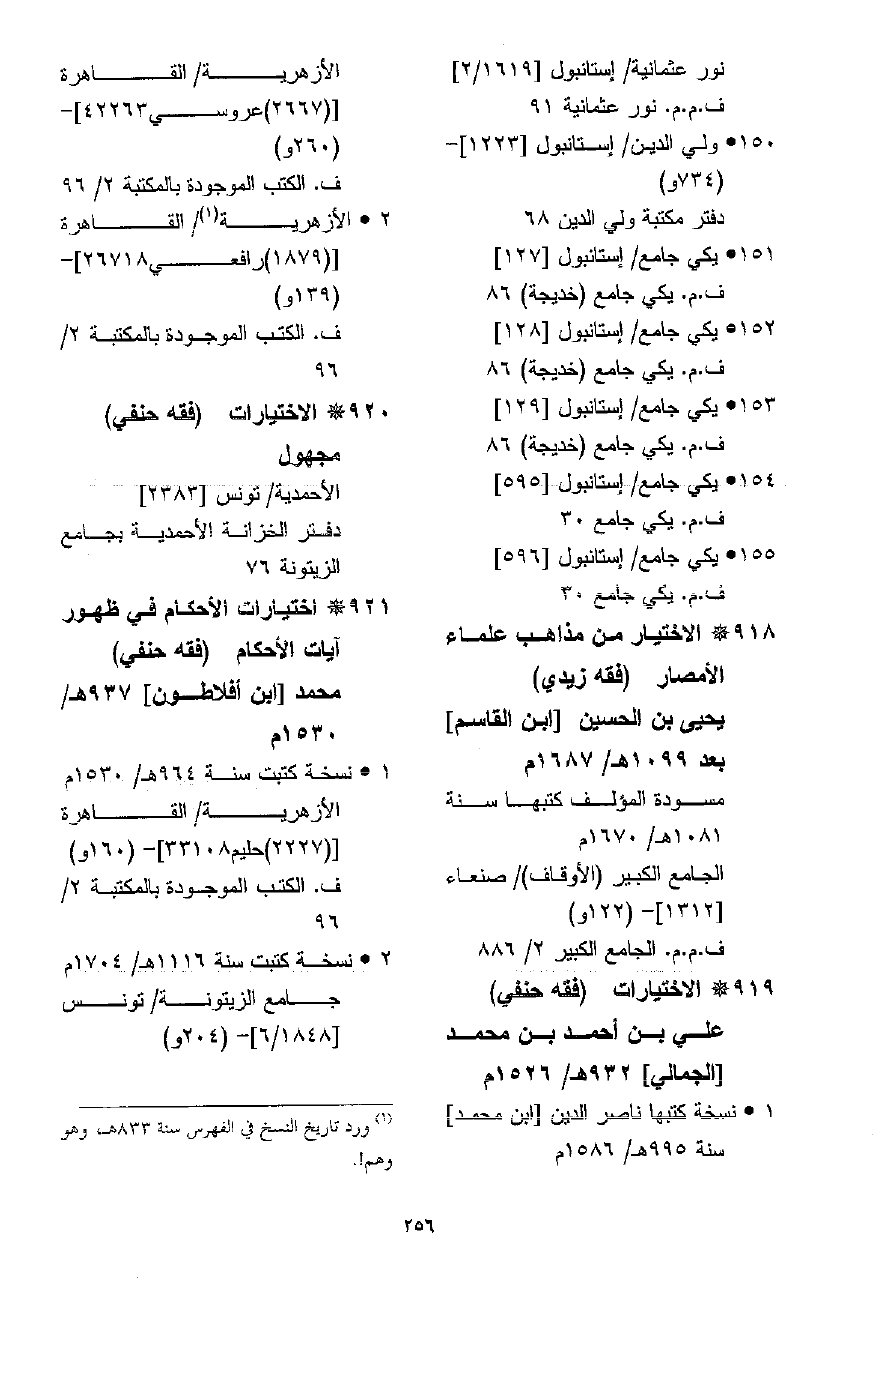 نور عثمانية/ إستانبول [٢/١٦١٩]
ف.م.م. نور عثمانية ٩١
١٥٠• ولي الدين/ إستانبول [١٢٢٣]-
(٧٣٤و)
دفتر مكتبة ولي الدين ٦٨
١٥١• يكي جامع/ إستانبول [١٢٧]
ف.م. يكي جامع (خديجة) ٨٦
١٥٢• يكي جامع/ إستانبول [١٢٨]
ف.م. يكي جامع (خديجة) ٨٦
١٥٣• يكي جامع/ إستانبول [١٢٩]
ف.م. يكي جامع (خديجة) ٨٦
١٥٤• يكي جامع/ إستانبول [٥٩٥]
ف.م. يكي جامع ٣٠
١٥٥• يكي جامع/ إستانبول [٥٩٦]
ف.م. يكي جامع ٣٠
٩١٨* الاختيار من مذاهب علماء
الأمصار (فقه زيدي)
يحيى بن الحسين [ابن القاسم]
بعد ١٠٩٩هـ/ ١٦٨٧م
مسودة المؤلف كتبها سنة
١٠٨١هـ/ ١٦٧٠م
الجامع الكبير (الأوقاف)/ صنعاء
[١٣١٢]- (١٢٢و)
ف.م.م. الجامع الكبير ٢/ ٨٨٦
٩١٩* الاختيارات (فقه حنفي)
علي بن أحمد بن محمد
[الجمالي] ٩٣٢هـ/ ١٥٢٦م
١ • نسخة كتبها ناصر الدين [ابن محمد]
سنة ٩٩٥هـ/ ١٥٨٦م
الأزهرية/ القاهرة
[(٢٦٦٧)عروسي٤٢٢٦٣]-
(٢٦٠و)
ف. الكتب الموجودة بالمكتبة ٢/ ٩٦
٢ • الأزهرية(١)/ القاهرة
[(١٨٧٩)رافعي٢٦٧١٨]-
(١٣٩و)
ف. الكتب الموجودة بالمكتبة ٢/
٩٦
٩٢٠* الاختيارات (فقه حنفي)
مجهول
الأحمدية/ تونس [٢٣٨٣]
دفتر الخزانة الأحمدية بجامع
الزيتونة ٧٦
٩٢١* اختيارات الأحكام في ظهور
آيات الأحكام (فقه حنفي)
محمد [ابن أفلاطون] ٩٣٧هـ/
١٥٣٠م
١ • نسخة كتبت سنة ٩٦٤هـ/ ١٥٣٠م
الأزهرية/ القاهرة
[(٢٢٢٧)حليم٣٣١٠٨]- (١٦٠و)
ف. الكتب الموجودة بالمكتبة ٢/
٩٦
٢ • نسخة كتبت سنة ١١١٦هـ/ ١٧٠٤م
جامع الزيتونة/ تونس
[٦/١٨٤٨]- (٢٠٤و)
(١) ورد تاريخ النسخ في الفهرس سنة ٨٣٣هـ، وهو
وهم!.
٢٥٦